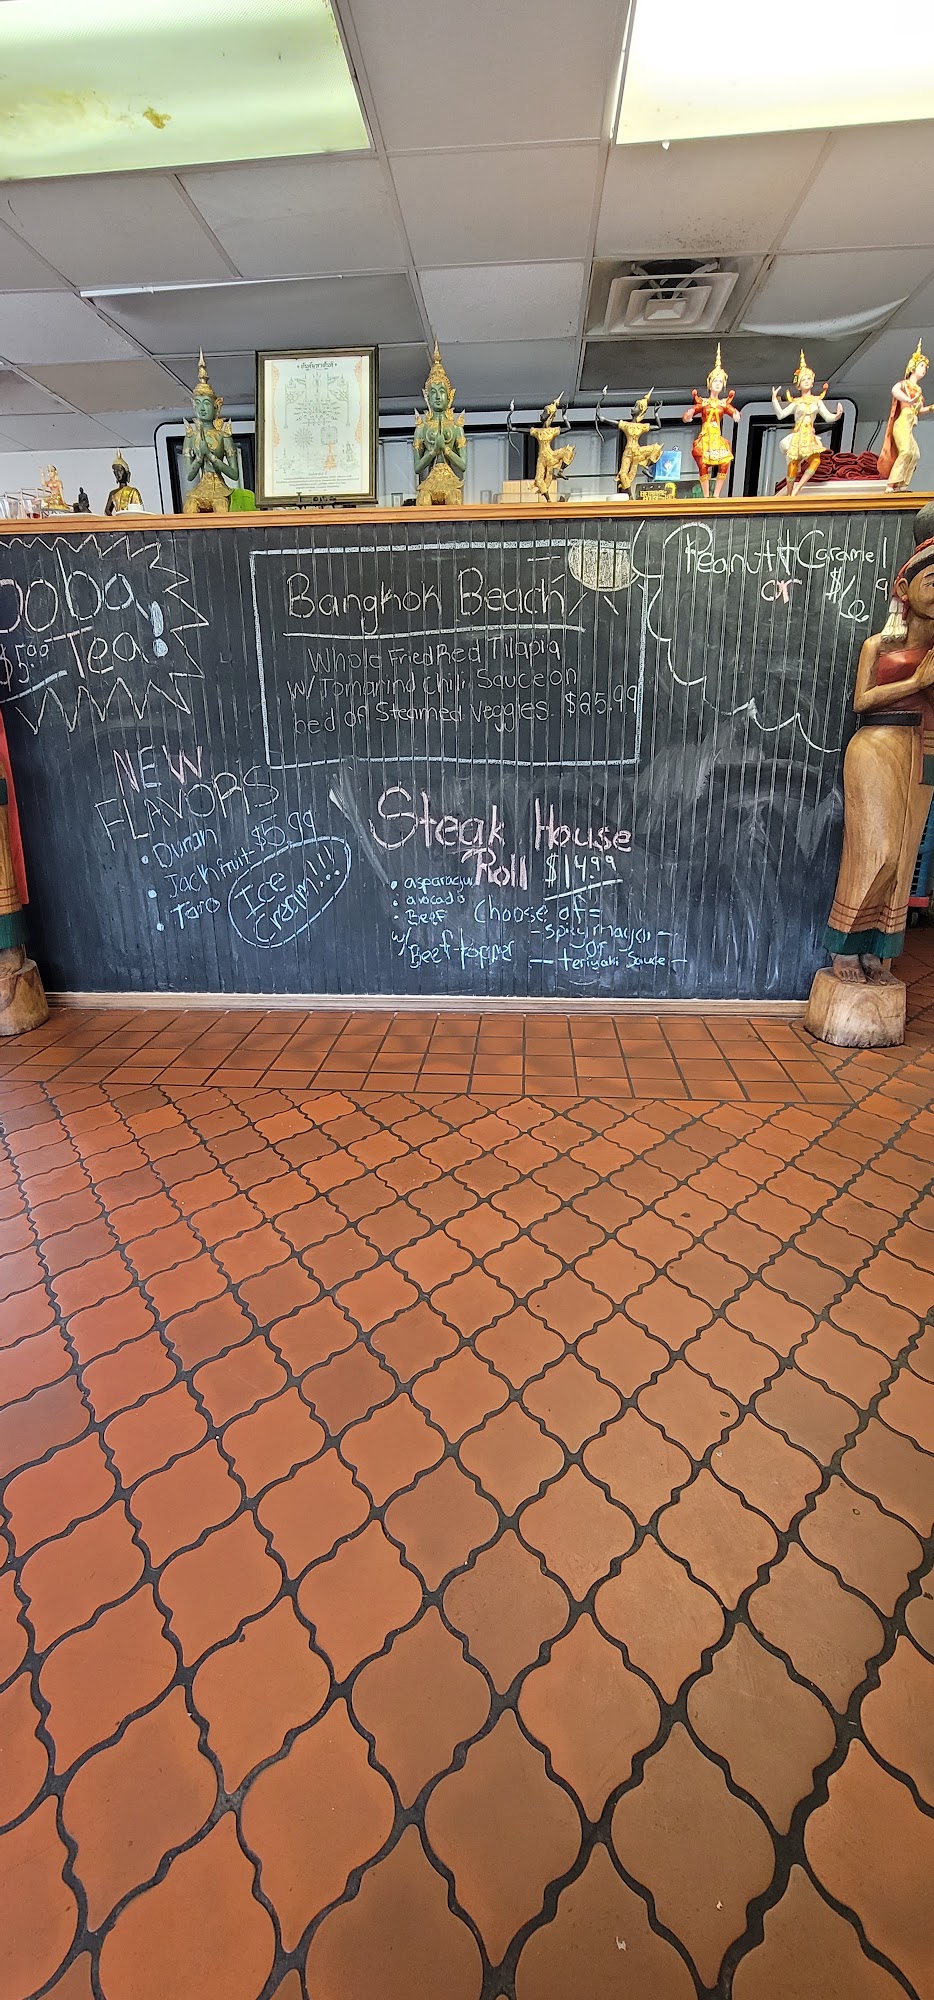 Boba
Tea!
$5.99
Bangkok Beach
Whole Fried Red Tilapia
w/ Tomarind Chili Sauce on
bed of Steamed Veggies $25.99
Peanutt Caramel
or $6.9
NEW
FLAVORS
• Durian
• Jackfruit $5.99
• Taro
Ice
Cream!!!
Steak House
Roll $14.99
• asparagus
• avocado
• Beef
w/
Beef topper
Choose of =
- spicy mayo -
or
- teriyaki Sauce -